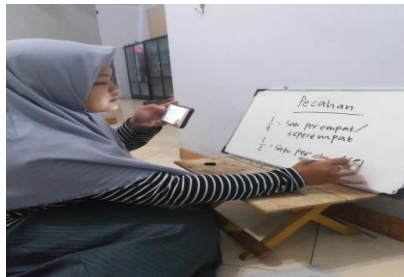 Pecahan
1/4 = satu per empat/
seperempat
1/2 = satu per